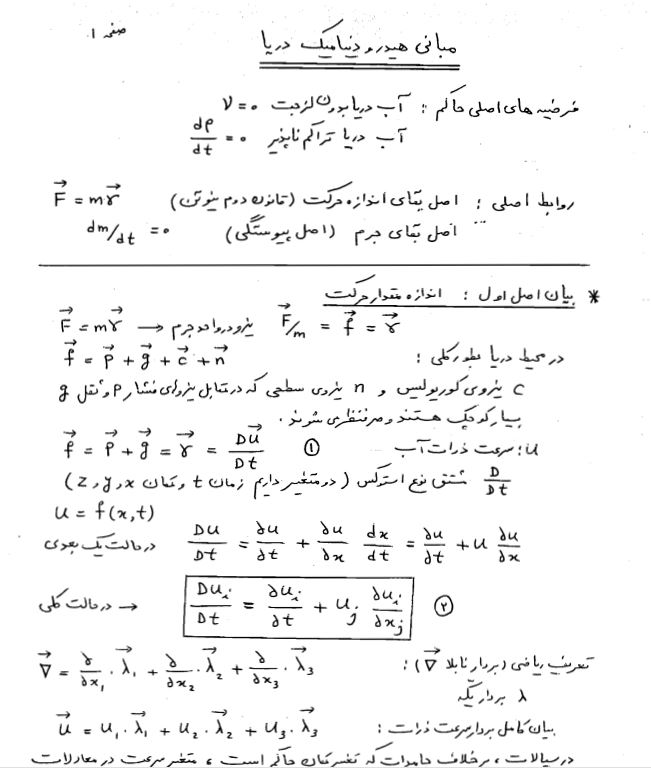 صفحه ۱.
مبانی هیدرودینامیک دریا
فرضیه های اصلی حاکم : آب دریا بدون لزجت ν = ۰
آب دریا تراکم ناپذیر dρ/dt = ۰
روابط اصلی : اصل بقای اندازه حرکت (قانون دوم نیوتن) F⃗ = mγ⃗
اصل بقای جرم (اصل پیوستگی) dm/dt = ۰
* بیان اصل اول : اندازه مقدار حرکت
F⃗ = mγ⃗ ⟶ نیرو در واحد جرم F⃗/m = f⃗ = γ⃗
در محیط دریا بطور کلی : f⃗ = p⃗ + g⃗ + c⃗ + n⃗
c نیروی کوریولیس و n نیروی سطحی که در مقابل نیروهای فشار p و ثقل g
بسیار کوچک هستند و صرفنظر می شوند .
u : سرعت ذرات آب ① f⃗ = p⃗ + g⃗ = γ⃗ = Du⃗/Dt
D/Dt مشتق نوع استوکس (دو متغیر داریم زمان t و مکان x و y و z)
u = f(x,t)
در حالت یک بعدی Du/Dt = ∂u/∂t + ∂u/∂x dx/dt = ∂u/∂t + u ∂u/∂x
در حالت کلی → Du_i/Dt = ∂u_i/∂t + u_j ∂u_i/∂x_j ②
تعریف ریاضی (بردار نابلا ∇⃗) : ∇⃗ = ∂/∂x₁ . λ⃗₁ + ∂/∂x₂ . λ⃗₂ + ∂/∂x₃ . λ⃗₃
λ بردار یکه
بیان کامل بردار سرعت ذرات : u⃗ = u₁ . λ⃗₁ + u₂ . λ⃗₂ + u₃ . λ⃗₃
در سیالات ، برخلاف جامدات که تغییر مکان حاکم است ، متغیر سرعت در معادلات